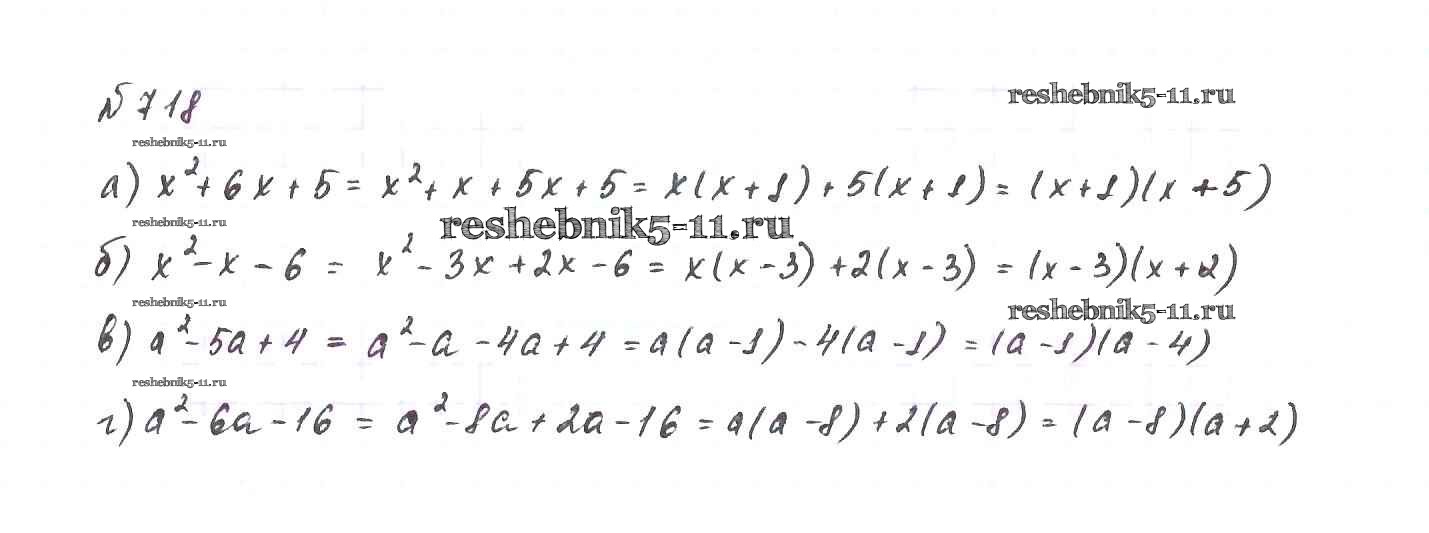 № 718
reshebnik5-11.ru
reshebnik5-11.ru
а) x² + 6x + 5 = x² + x + 5x + 5 = x(x + 1) + 5(x + 1) = (x + 1)(x + 5)
reshebnik5-11.ru
reshebnik5-11.ru
б) x² - x - 6 = x² - 3x + 2x - 6 = x(x - 3) + 2(x - 3) = (x - 3)(x + 2)
reshebnik5-11.ru
reshebnik5-11.ru
в) a² - 5a + 4 = a² - a - 4a + 4 = a(a - 1) - 4(a - 1) = (a - 1)(a - 4)
reshebnik5-11.ru
г) a² - 6a - 16 = a² - 8a + 2a - 16 = a(a - 8) + 2(a - 8) = (a - 8)(a + 2)